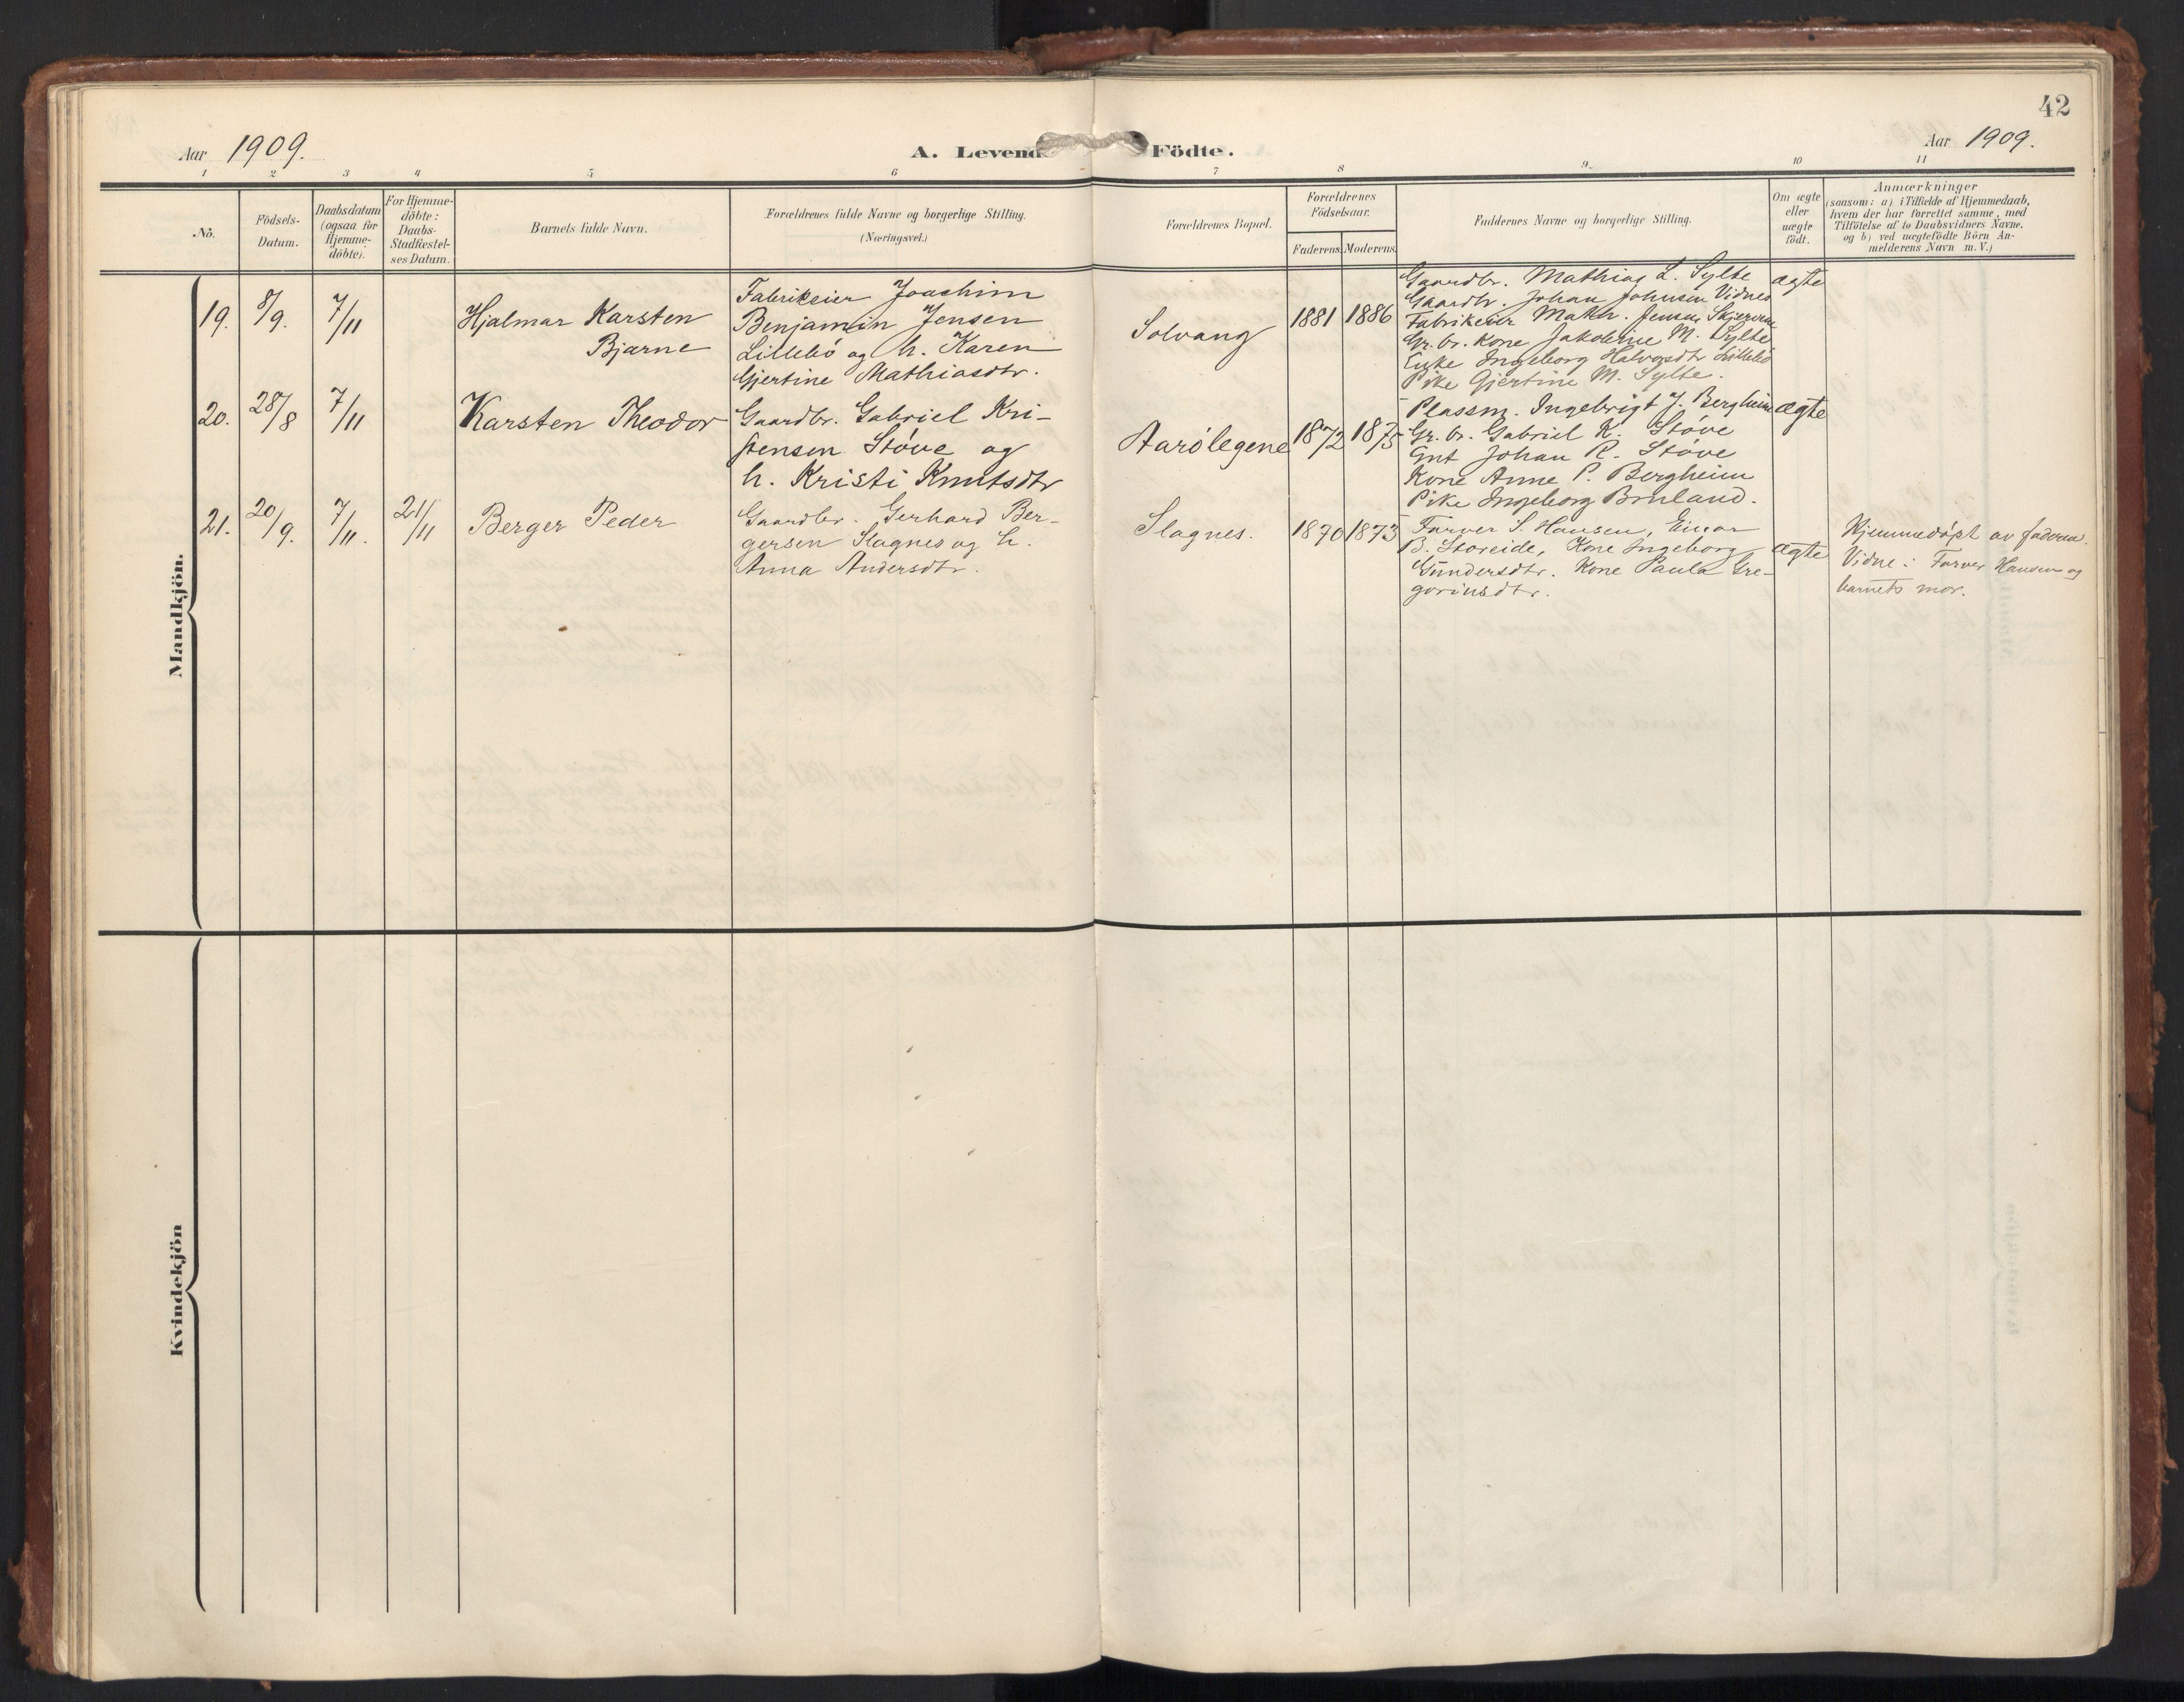 42
Aar 1909.
A. Levend
Födte.
Aar 1909.
1 2 3 4 5 6 7 8 9. 10 11
No.
Födsels-
Datum.
Daabsdatum
(ogsaa for
Hjemme-
döbte).
For Hjemme-
döbte:
Daabs-
Stadfæstel-
ses Datum.
Barnets fulde Navn.
Forældrenes fulde Navne og borgerlige Stilling.
(Næringsvei.)
Forældrenes Bopæl.
Forældrenes
Födselsaar.
Faderens Moderens
Faddernes Navne og borgerlige Stilling.
Om ægte
eller
uægte
födt.
Anmærkninger
(saasom: a) i Tilfælde af Hjemmedaab,
hvem der har forrettet samme, med
Tilföielse af to Daabsvidners Navne.
og b) ved uægtefödte Börn An-
melderens Navn m.V.)
Mandkjön.
19. 8/9. 7/11
Hjalmar Karsten
Bjarne
Fabrikeier Joachim
Benjamin Jensen
Lillebö og h. Karen
Gjertine Mathiasdtr.
Solvang
1881 1886
Gaardbr. Mathias L. Sylte
Gaardbr. Johan Johnsen Vidnes
Fabrikeier Math. Jensen
Gr. br. Kone Jakobine M. Sylte
Enke Ingeborg Halvorsdtr Lillebö
Pike Gjertine M. Sylte.
ægte
20. 28/8 7/11
Karsten Theodor
Gaardbr. Gabriel Kri-
stensen Stöve og
h. Kristi Knutsdtr
Aarölegene
1872 1875
Plassm. Ingebrigt J. Bergheim
Gr. br. Gabriel K. Stöve
Gut Johan R. Stöve
Kone Anne P. Bergheim
Pike Ingeborg Bruland.
ægte
21. 20/9. 7/11. 21/11
Berger Peder
Gaardbr. Gerhard Ber-
gersen Slagnes og h.
Anna Andersdtr.
Slagnes.
1870 1873
Farver S. Hansen, Einar
B. Storeide, Kone Ingeborg
Gundersdtr. Kone Paula Gre-
goriusdtr.
ægte
Hjemmedöpt av faderen.
Vidne: Farver Hansen og
barnets mor.
Kvindekjön